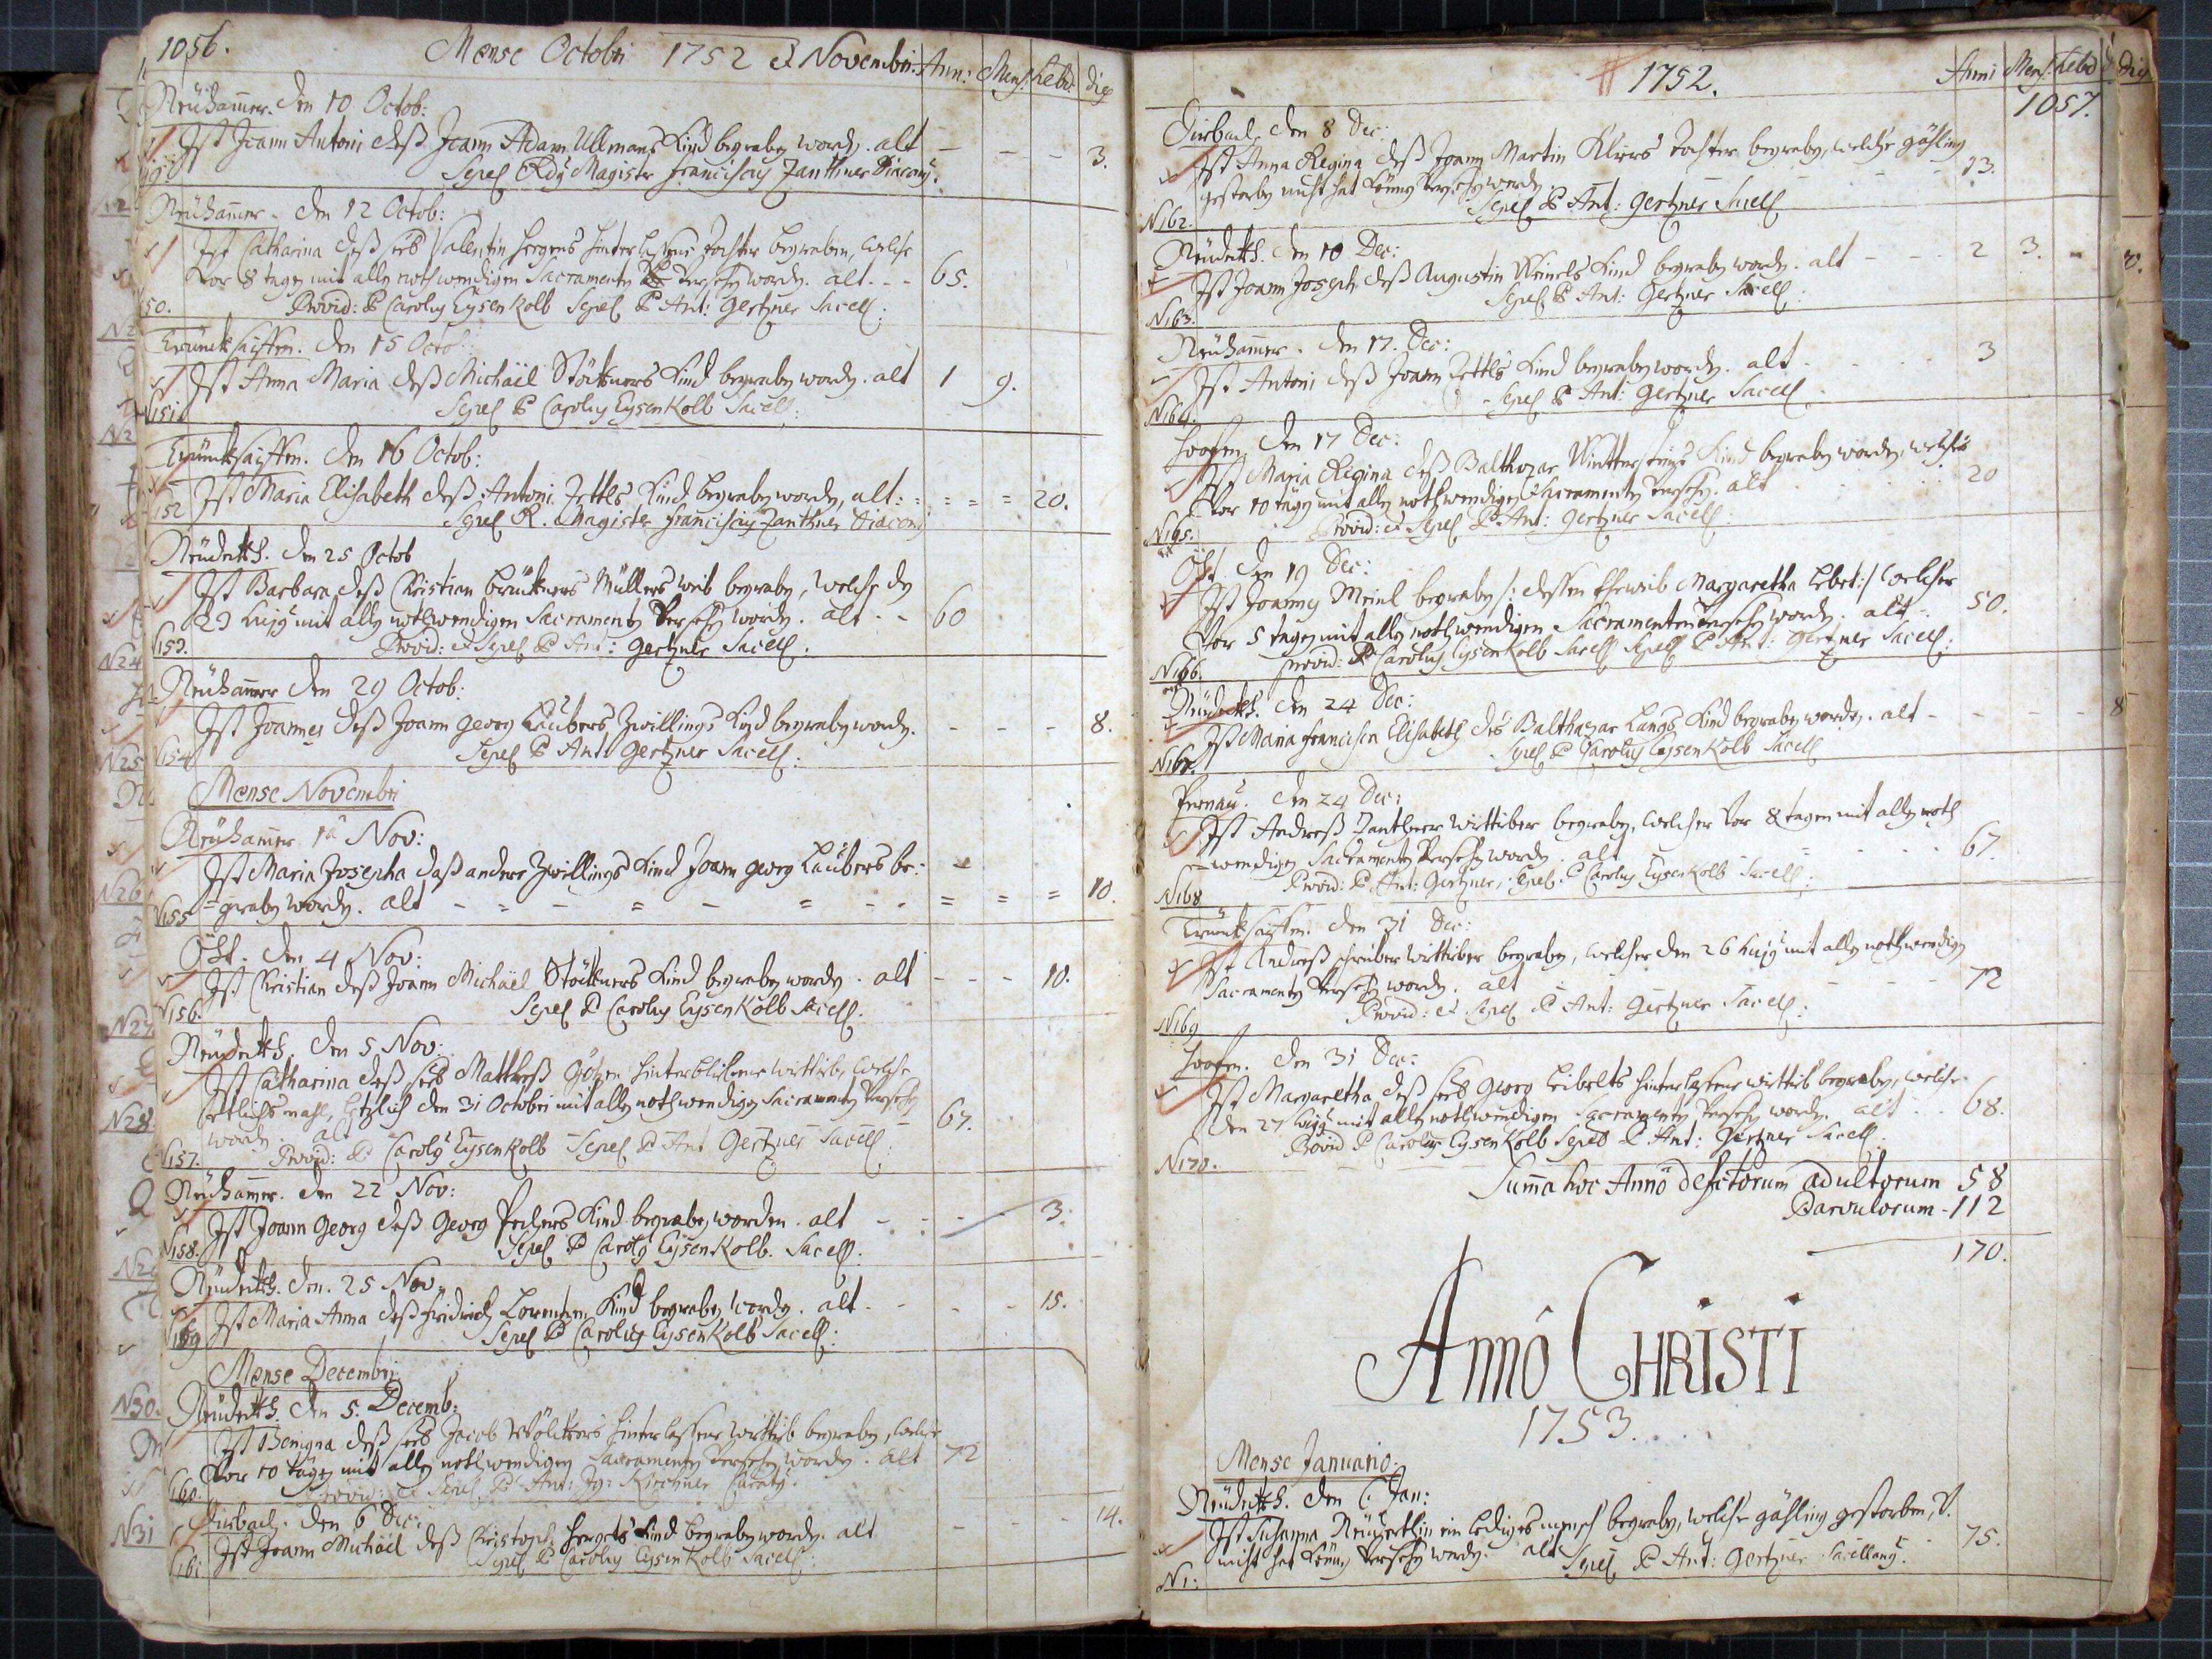 1056.
Mense Octobri 1752 et Novembri:
Ann: Mens: Hebd: die
Neühamer. den 10 Octob:
Ist Joann Antoni deß Joann Adam Ullmans Kind begraben worden. alt - - - 3.
Sepel Rdg Magister Franciscus Zanthner Diaconus.
Neühamer. den 12 Octob:
Ist Catharina deß seel Valentin hinterlaßene Tochter begraben, welche
Vor 8 tagen mit allen nothwendigen Sacramenten Versehen worden. alt - - 65.
150. Provid: P Carolus Eysenkolb Sepel P Ant: Gertzner Sacell:
Trüncksaiffen. den 15 Octo:
Ist Anna Maria deß Michäel Stöckners Kind begraben worden. alt 1 9.
151 Sepel P Carolus Eysenkolb Sacell:
Trüncksaiffen. den 16 Octob:
152 Ist Maria Elisabeth deß Antoni Zettls Kind begraben worden, alt: = = = 20.
Sepel R. Magister Franciscus Zanthner Diaconus
Neüdekh. den 25 Octob
Ist Barbara deß Christian Müllers weib begraben, welche den
23 hujus mit allen nothwendigen Sacramenten Versehen worden. alt - - 60
153. Provid: et Sepel P Ant: Gertzner Sacell:
Neühamer den 29 Octob:
Ist Joannes deß Joann Georg Laubers Zwillings Kind begraben worden. - - - 8.
154 Sepel P Ant Gertzner Sacell:
Mense Novembri
Neühamer 1a Nov:
Ist Maria Josepha daß andere Zwillings Kind Joann Georg Laubers be:
155 =graben worden. alt - = - = - = - - = = = 10.
Öst. den 4 Nov:
Ist Christian deß Joann Michäel Stöckners Kind begraben worden. alt - - - 10.
N156. Sepel P Carolus Eysenkolb Sacell:
Neüdekh. den 5 Nov:
Ist Catharina deß seel Mattheß hinterblibene wittib, welche
mahl, letzlich den 31 Octobri mit allen nothwendigen Sacramenten Versehen
worden. alt - - 67.
157. Provid: P Carolg Eysenkolb Sepel P Ant Gertzner Sacell:
Neühamer. den 22 Nov:
Ist Joann Georg deß Georg Kind begraben worden. alt - - - 3.
N158. Sepel P Carolg Eysenkolb. Sacell:
Neüdekh. den. 25 Nov:
Ist Maria Anna deß Fridrich Lorentzen Kind begraben worden. alt. - - - 15.
159 Sepel P Carolus Eysenkolb Sacell:
Mense Decembri
Neüdekh. den 5. Decemb:
Ist Benigna deß seel Jacob hinterlassene wittib begraben, welche
Vor 10 tägen mit allen nothwendigen Sacramenten Versehen worden. alt 72
160. Provid: et Sepel P Ant: Kirchner Curatg.
Dirbach. den 6 Dec:
161 Ist Joann Michäel deß Christoph Kind begraben worden. alt - - - 14.
Sepel P Carolus Eysenkolb Sacell:
1752.
Anni Mens: Hebd: die
1057.
Dirbach den 8 Dec:
Ist Anna Regina deß Joann Martin Kliers Tochter begraben, welche gähling
gestorben nicht hat können Versehen werden. - - - 13.
N162. Sepel P Ant: Gertzner Sacell
Neüdekh. den 10 Dec:
Ist Joann Joseph deß Augustin Weinels Kind begraben worden. alt - - - 2 3. -
N163. Sepel P Ant: Gertzner Sacell:
Neühamer. den 17. Dec:
Ist Antoni deß Joann Zettls Kind begraben worden. alt - - - 3
N164. Sepel P Ant: Gertzner Sacell
Hoofen den 17 Dec:
Ist Maria Regina deß Balthazar Kind begraben worden, welches
Vor 10 tägen mit allen nothwendigen Sacramenten Versehen. alt 20
N165. Provid: et Sepel P Ant: Gertzner Sacell:
Öst den 19 Dec:
Ist Joannes Meinl begraben /: dessen Eheweib Margaretha lebet:/ welcher
Vor 5 tagen mit allen nothwendigen Sacramenten Versehen worden. alt - 50.
N166. Provid: P Carolus Eysenkolb Sacell Sepell P Ant: Gertzner Sacell:
Neüdekh. den 24 Dec:
Ist Maria Francisca Elisabeth des Balthazar Langs Kind begraben worden. alt - - - - 8
N167. Sepel P Carolus Eysenkolb Sacell
Pernau. den 24 Dec:
Ist Andreß Zanthner Wittiber begraben, welcher Vor 8 tagen mit allen noth
=wendigen Sacramenten Versehen worden. alt - - - 67.
N168 Provid: P Ant: Gertzner, Sepel P Carolus Eysenkolb Sacell:
Trüncksaiffen. den 31 Dec:
Ist Andreß Schreiber Wittiber begraben, welcher den 26 hujg mit allen nothwendigen
Sacramenten Versehen worden. alt - - - 72
N169 Provid: et Sepel P Ant: Gertzner Sacell:
Hoofen. den 31 Dec:
Ist Margaretha deß seel Georg hinterlaßene wittib begraben, welche
den 27 hujg mit allen nothwendigen Sacramenten Versehen worden. alt - - 68.
N170. Provid P Carolus Eysenkolb Sepel P Ant: Gertzner Sacell:
Suma hoc Anno defctorum adultorum 58
Parvulorum - 112
170.
Anno CHRISTI
1753.
Mense Januario.
Neüdekh. den 6 Jan:
Ist Susanna ein lediges mensch begraben, welche gähling gestorben, v.
nicht hat können Versehen werden. alt 75.
N1: Sepel P Ant: Gertzner Sacellang.